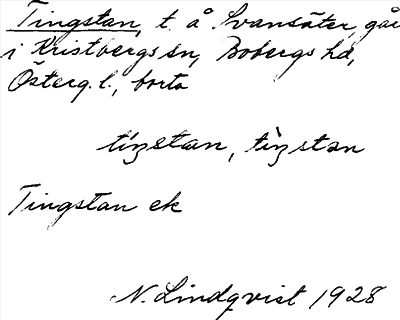 Tingstan, t. å Svansäter, går
i Kristbergs sn, Bobergs hd,
Österg. l., borta
tiŋstan, tìŋstan
Tingstan ek
N. Lindqvist 1928